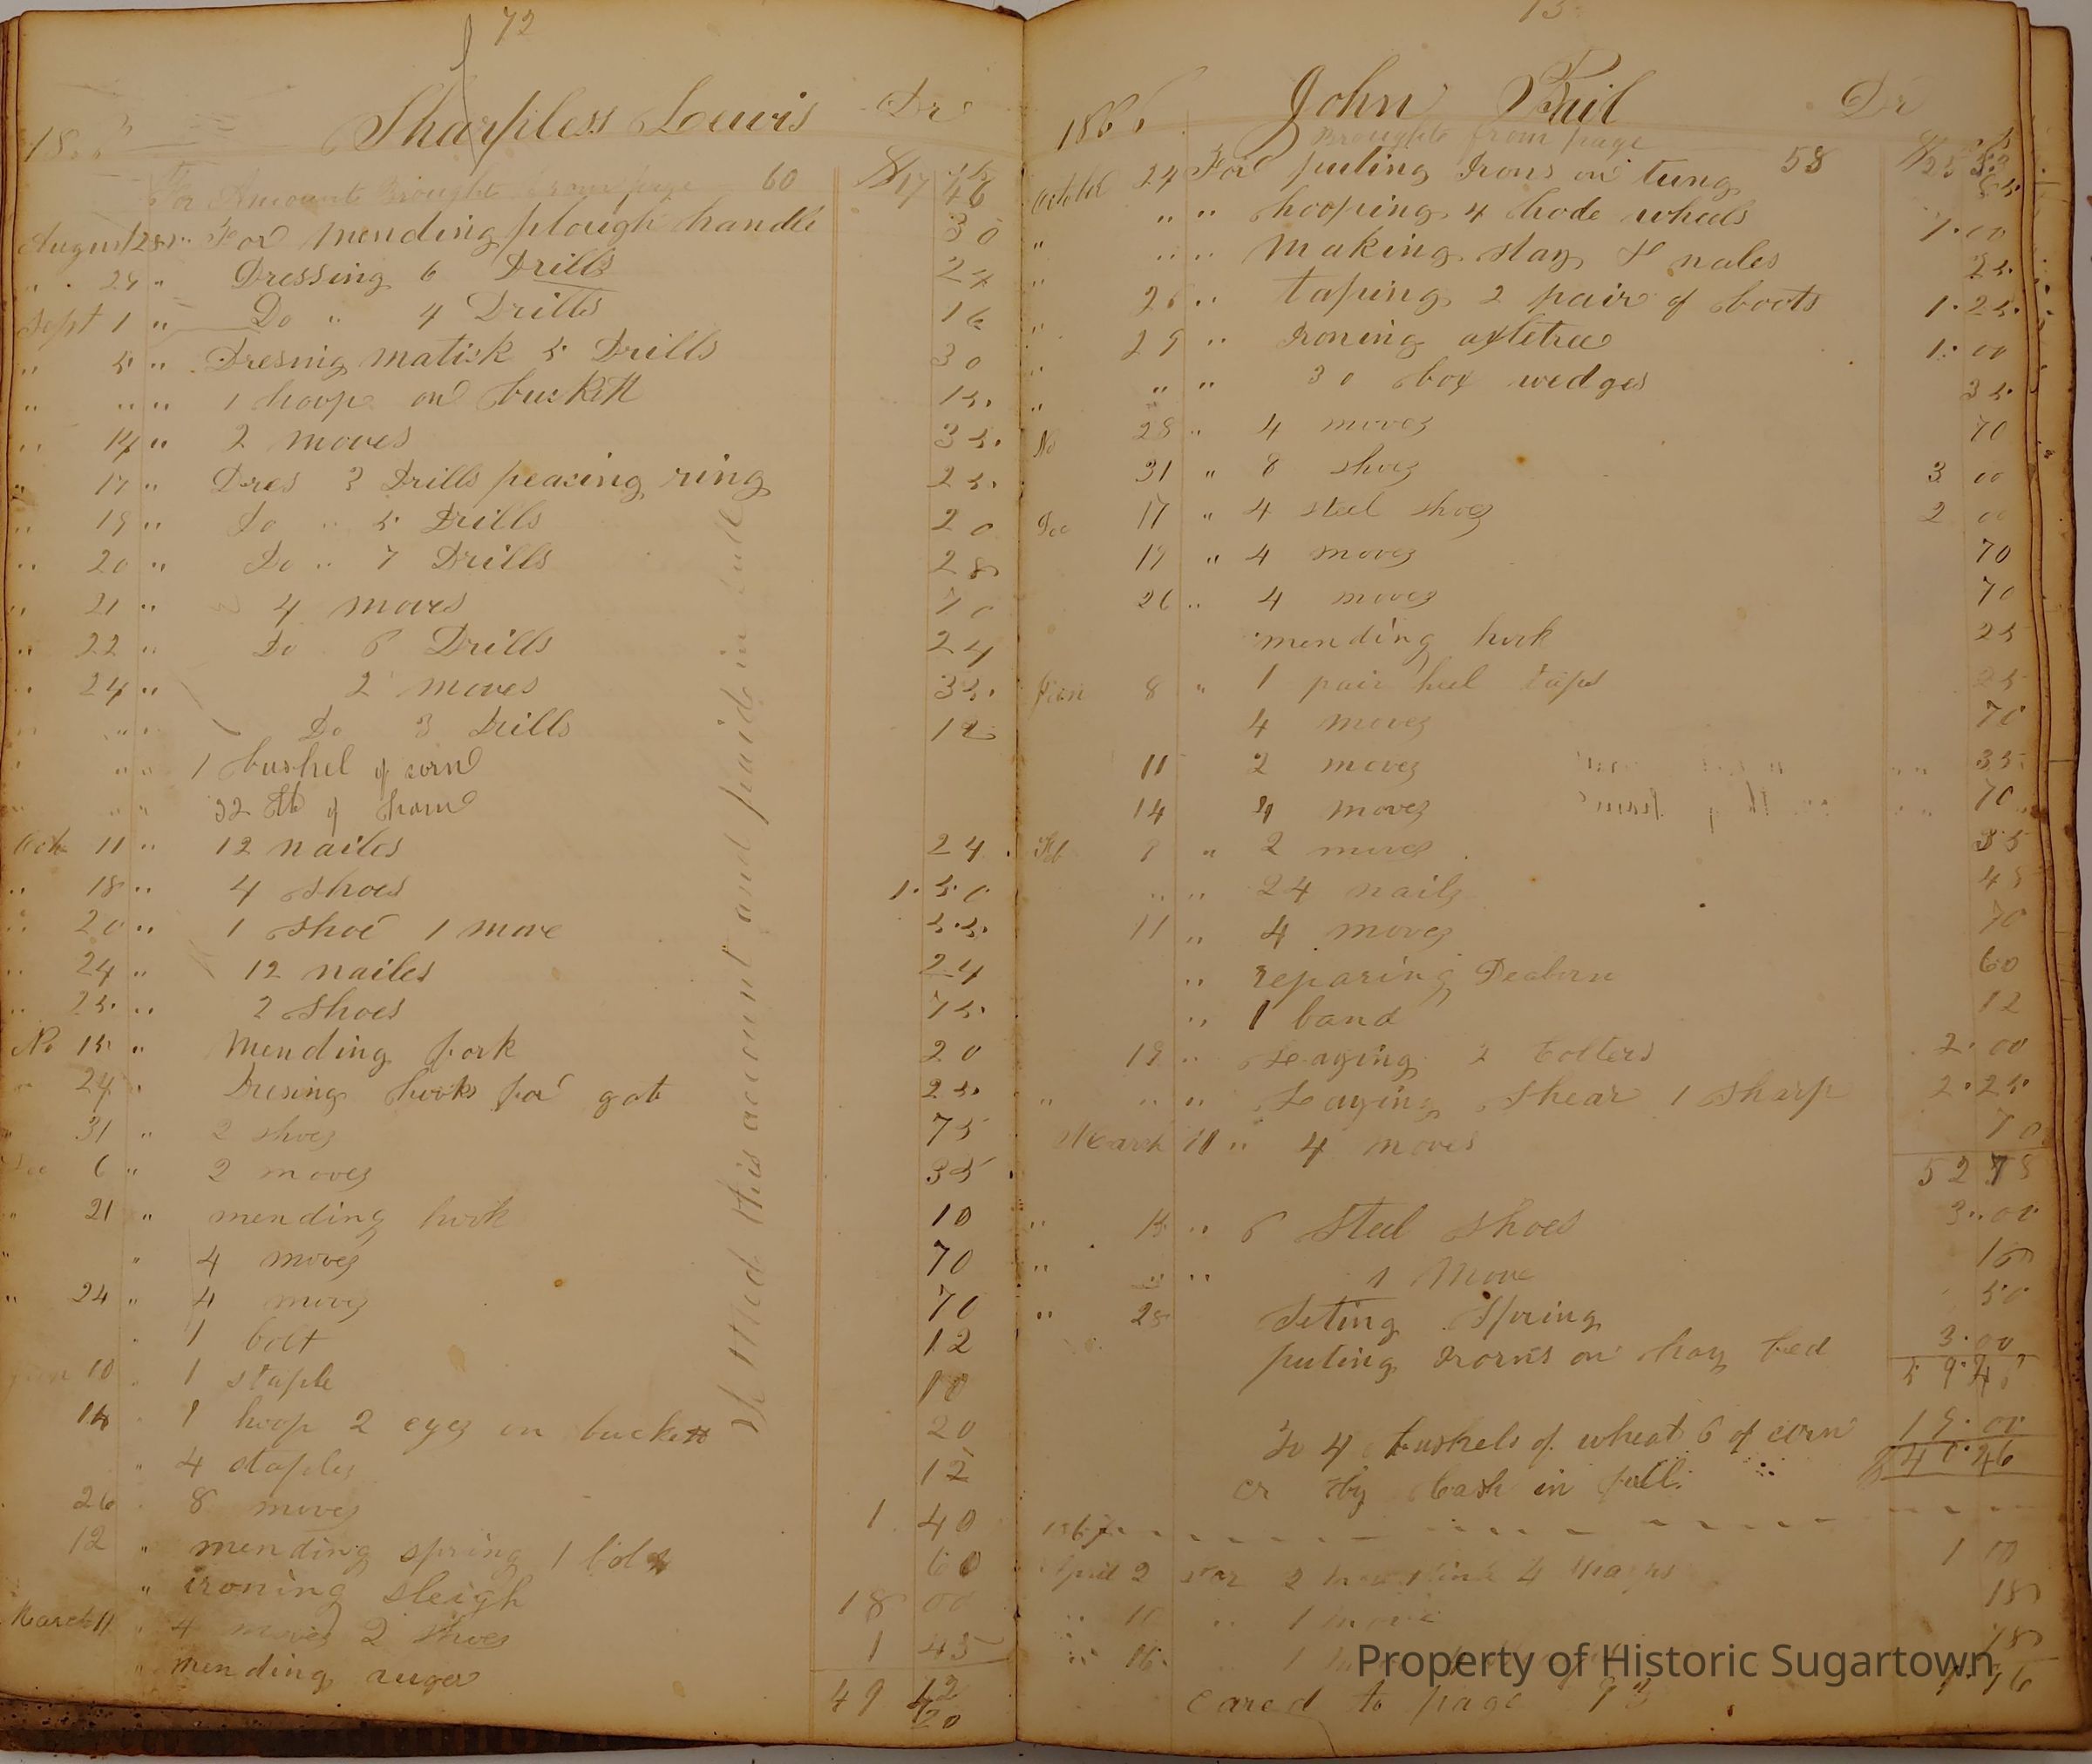 72
Sharpless Lewis Dr
For Amount Brought from page 60 $17 46
August 28 " For mending plough handle 30
" 29 " Dressing 6 Drills 24
Sept 1 " Do " 4 Drills 16
" 5 " Dresing matick 5 Drills 30
" " " 1 hoope on buckett 15
" 14 " 2 moves 35
" 17 " Dres 3 Drills peacing ring 25
" 19 " Do " 5 Drills 20
" 20 " Do " 7 Drills 28
" 21 " 4 moves 70
" 22 " Do 6 Drills 24
" 24 " 2 moves 35
" " " Do 3 Drills 12
" " 1 bushel of corn
" " 32 lb of ham
Oct 11 " 12 nailes 24
" 18 " 4 shoes 1.50
" 20 " 1 shoe 1 move 55
" 24 " 12 nailes 24
" 25 " 2 shoes 75
No 15 " Mending fork 20
" 24 " Dresing hooks for gate 25
" 31 " 2 shoes 75
Dec 6 " 2 moves 35
" 21 " mending hook 10
" " 4 moves 70
" 24 " 4 moves 70
1 bolt 12
Jan 10 1 staple 10
14 1 hoop 2 eyes on buckett 20
" 4 staples 12
26 8 moves 1 40
12 " mending spring 1 bolt 60
" ironing sleigh 18 00
March 11 " 4 moves 2 shoes 1 45
" mending auger
49 12
20
Settled this account and paid in full
73
1866 John Buil Dr
Brought from page 58
October 24 For puting Irons on tung
" " " hooping 4 hode wheels 7.00
" " " Making stay & nales 25
" 26 " taping 2 pair of boots 1.25
" 29 " Ironing axletree 1.00
" " " 30 box wedges 35
No 28 " 4 moves 70
31 " 8 shoes 3 00
Dec 17 " 4 steel shoes 2 00
19 " 4 moves 70
26 " 4 moves 70
mending hook 25
Jan 8 " 1 pair heel taps 25
4 moves 70
11 2 moves 35
14 4 moves 70
Feb 9 " 2 moves 35
" " 24 nails 48
11 " 4 moves 70
" reparing Dearborn 60
" 1 band 12
19 " Leaying 2 Colters 2.00
" " " Leaying Shear 1 sharp 2.25
March 11 " 4 moves 70
52 78
" 15 " 6 Steel Shoes 3.00
" " " 1 Move 18
" 28 Seting Spring 50
puting Irorns on hay bed 3.00
59.46
To 4 bushels of wheat 6 of corn 19.00
cr By Cash in full $40.46
1867
April 2 For 4 sharps 1 10
" 10 " 1 move 18
" 16 " 1 18
cared to page 93
Property of Historic Sugartown